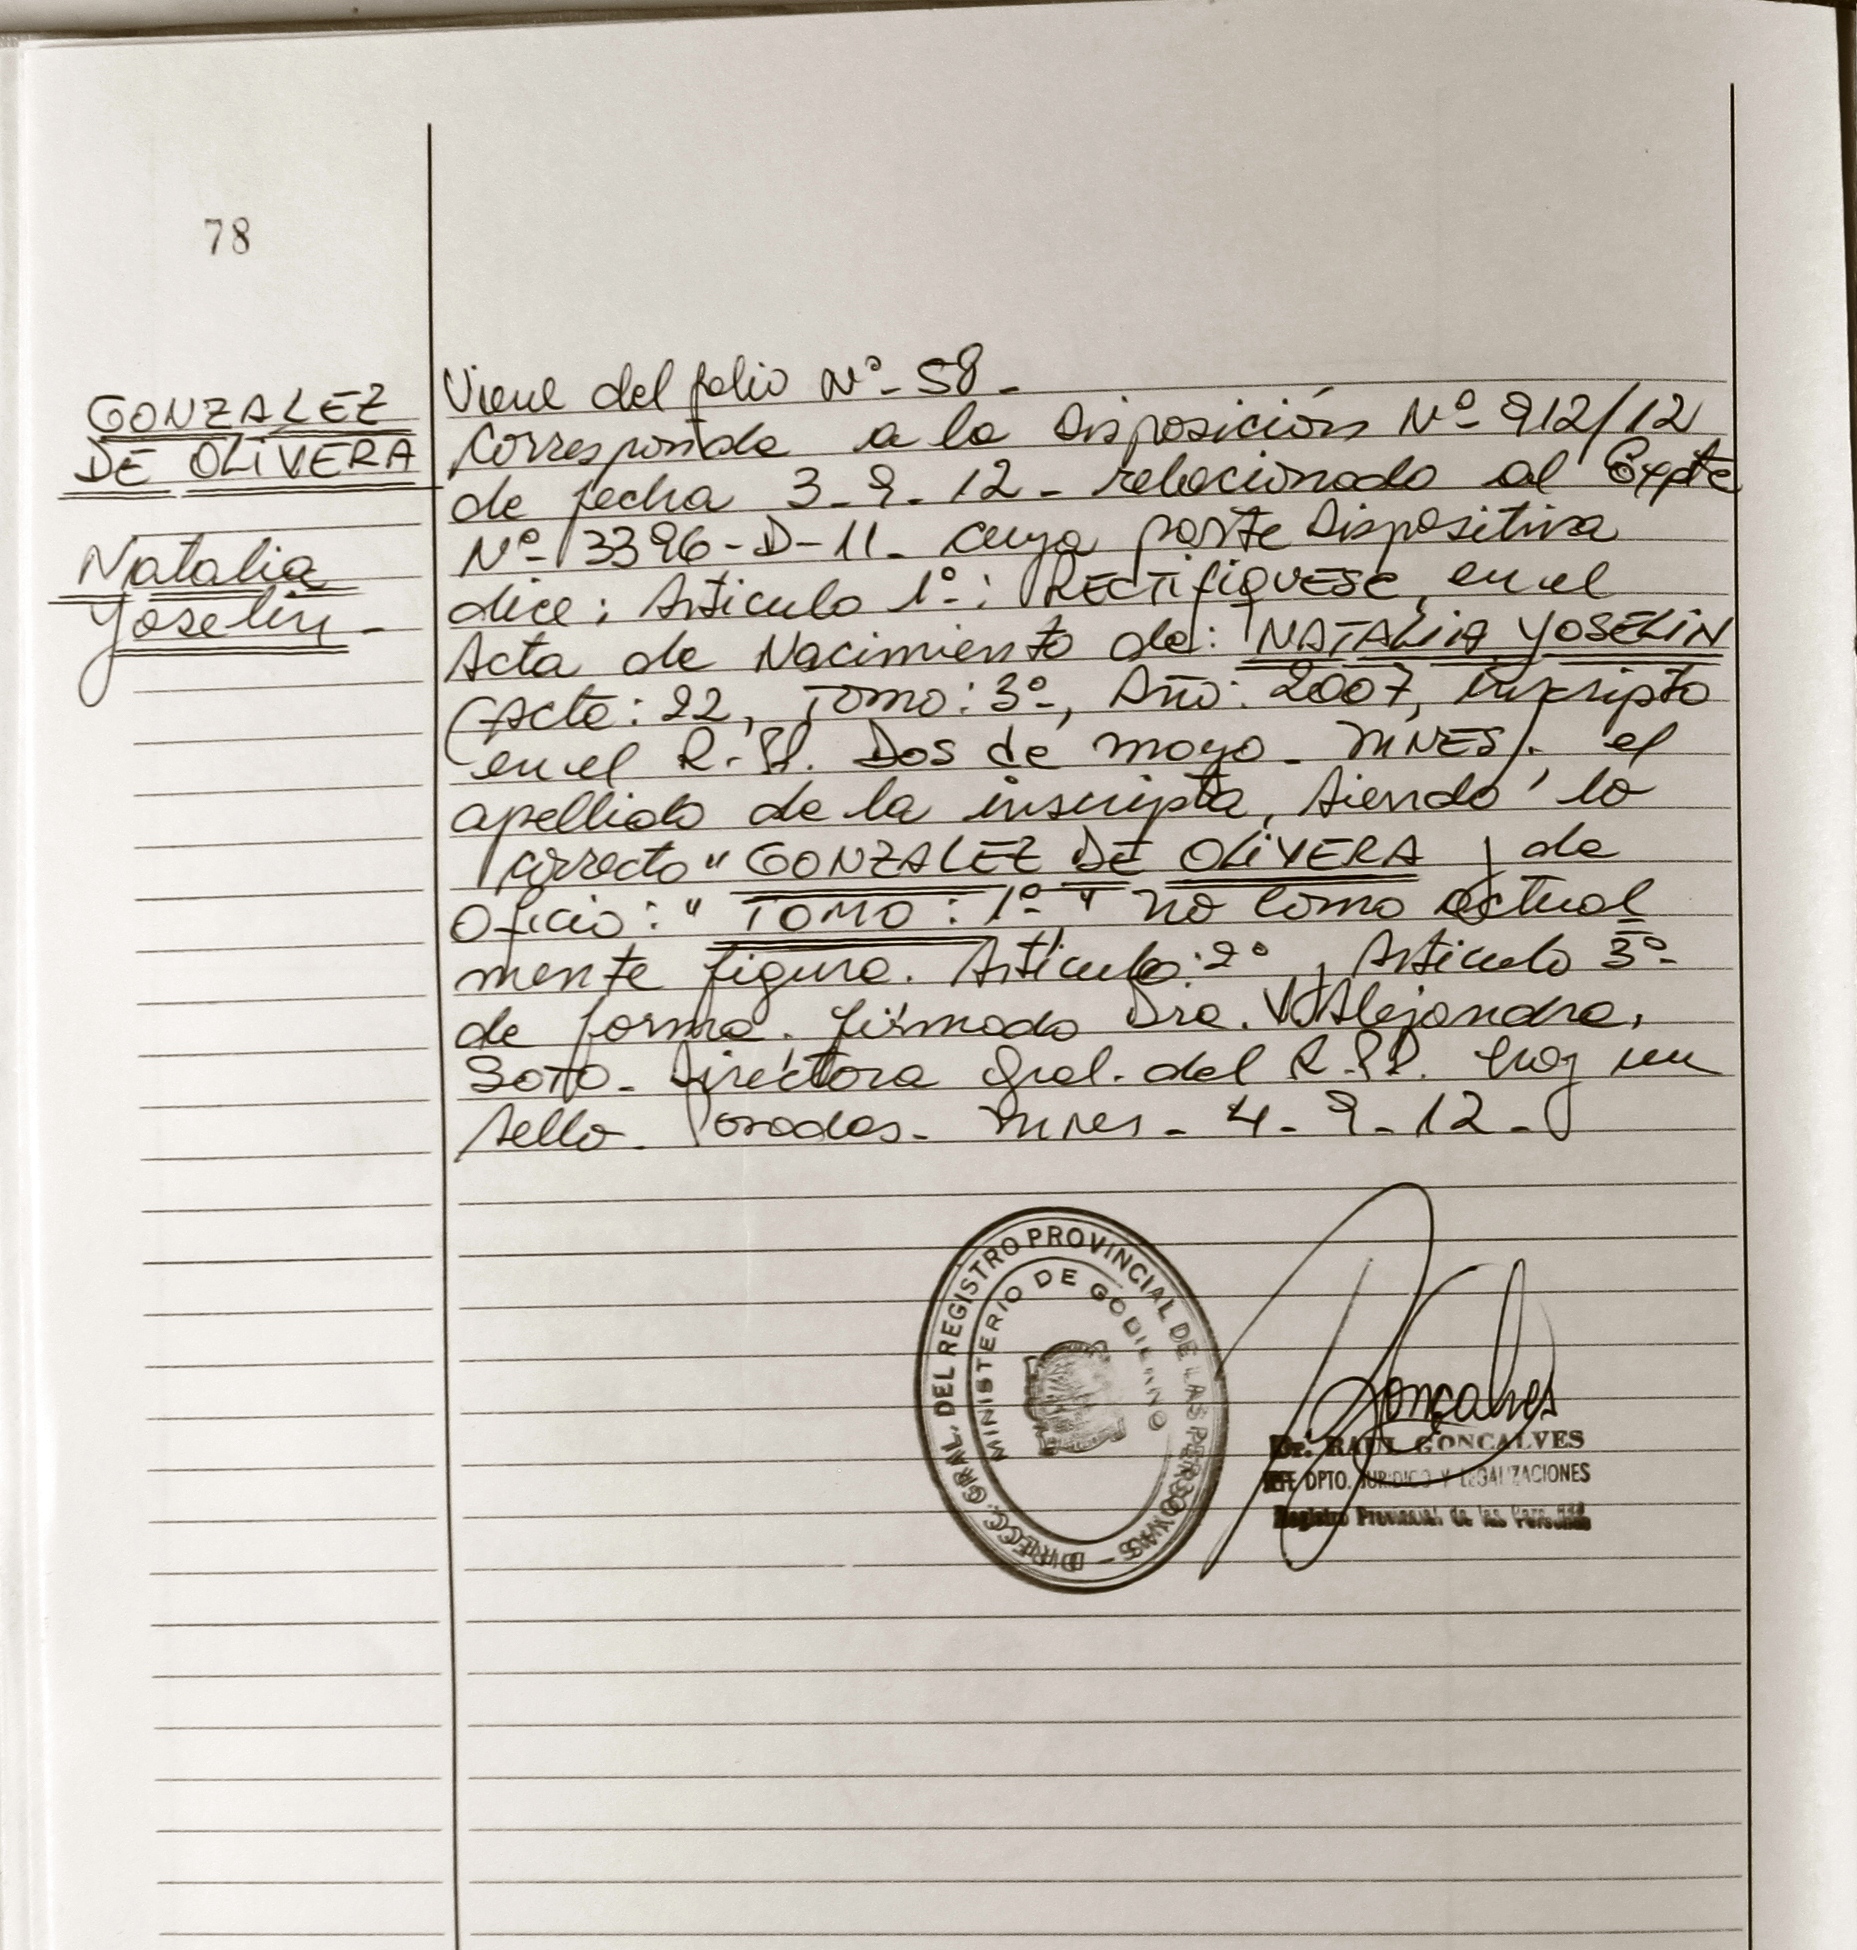 78
GONZALEZ
DE OLIVERA
Natalia
Yoselin -
Viene del folio Nº- 58 -
Corresponde a la Disposición Nº- 912/12
de fecha 3-9-12- relacionado al Expte
Nº- 3396-D-11- cuya parte Dispositiva
dice: Articulo 1º-: RECTIFIQUESE, en el
Acta de Nacimiento de: NATALIA YOSELIN
(Acta: 22, Tomo: 3º-, Año: 2007, inscripta
en el R.P.P. Dos de mayo - MNES). el
apellido de la inscripta, siendo lo
correcto "GONZALEZ DE OLIVERA", de
Oficio: " TOMO: 1º- " no como actual
mente figura. Articulo: 2º, Articulo 3º-
de forma. firmado Dra. Alejandra,
Soto- Directora Gral. del R.P.P. Hay un
sello. Posadas- Mnes - 4-9-12-
DIRECC. GRAL. DEL REGISTRO PROVINCIAL DE LAS PERSONAS -
MINISTERIO DE GOBIERNO
Gonçalves
Dr. RAUL GONCALVES
JEFE DPTO. JURIDICO Y LEGALIZACIONES
Registro Provincial de las Personas